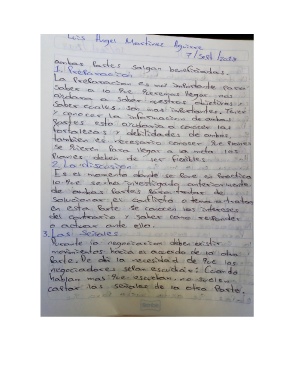 Luis Angel Martinez Aguirre
7/Sept/2023
ambas Partes salgan beneficiadas.
1. Preparación
La Preparación es muy importante Para
Saber a lo Que Queremos llegar nos
ayudara a Saber nuestros objetivos y
Saber cuales son los importantes, Tener
y conocer la información de ambas
Partes esto ayudara a conocer las
fortalezas y debilidades de ambas,
también es necesario conocer Que Planes
se Para llegar a la meta, los
Planes deben de ser flexibles.
2. La discusión
Es el momento donde se Pone en Practica
lo Que se ha investigado anteriormente
de ambas Partes Para tratar de
Solucionar el conflicto o tema a tratar
en esta Parte se conocen los intereses
del contrario y saber como responder
o actuar ante ello.
3. Las Señales
Durante la negociación deben existir
movimientos hacia el acuerdo de la otra
Parte. De ahí la necesidad de Que los
negociadores sepan escuchar: Cuando
hablan mas Que escuchan, no suelen
captar las señales de la otra Parte.